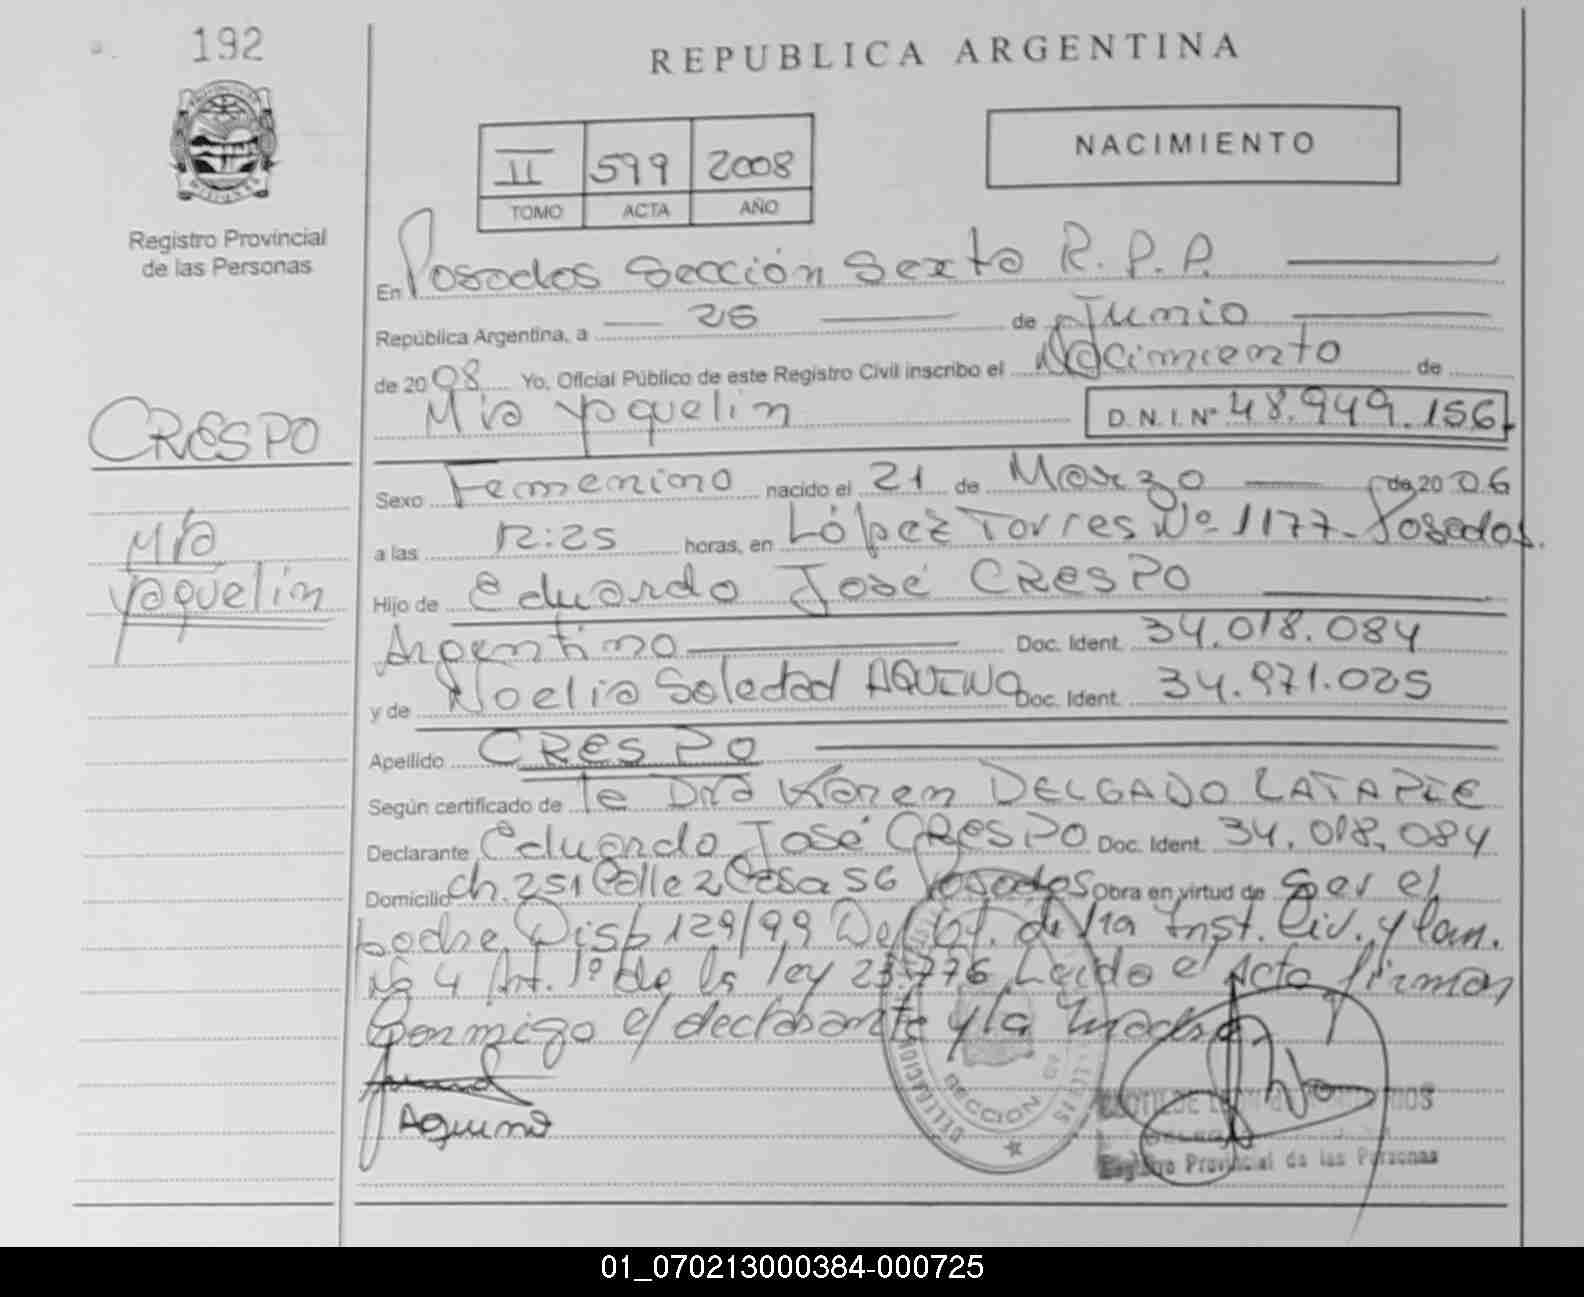 192
REPUBLICA ARGENTINA
NACIMIENTO
II 599 2008
TOMO ACTA AÑO
Registro Provincial
de las Personas
En Posadas Sección Sexta R.P.P.
República Argentina, a 26 de Junio
de 2008 Yo, Oficial Público de este Registro Civil inscribo el Nacimiento de
Mía Yaquelin D.N.I.Nº 48.949.156
CRESPO
Sexo Femenino nacido el 21 de Marzo de 2006
Mía
a las 12:25 horas, en López Torres Nº 1177 - Posadas.
Yaquelin
Hijo de Eduardo José CRESPO
Argentino Doc. Ident. 34.018.084
y de Noelia Soledad AQUINO Doc. Ident. 34.971.025
Apellido CRESPO
Según certificado de Dra Karen DELGADO LATAPIE
Declarante Eduardo José CRESPO Doc. Ident. 34.018.084
Domicilio Ch. 251 Calle 2 Casa 56 Posadas Obra en virtud de Ser el
padre Disp 129/99 de 1ra Inst. Civ. y
Nº 4 Art. 1º de la ley 23.776 Leido el Acta firman
conmigo el declarante y la madre
Aquino
DELEGACION
SECCION
Registro Provincial de las Personas
01_070213000384-000725